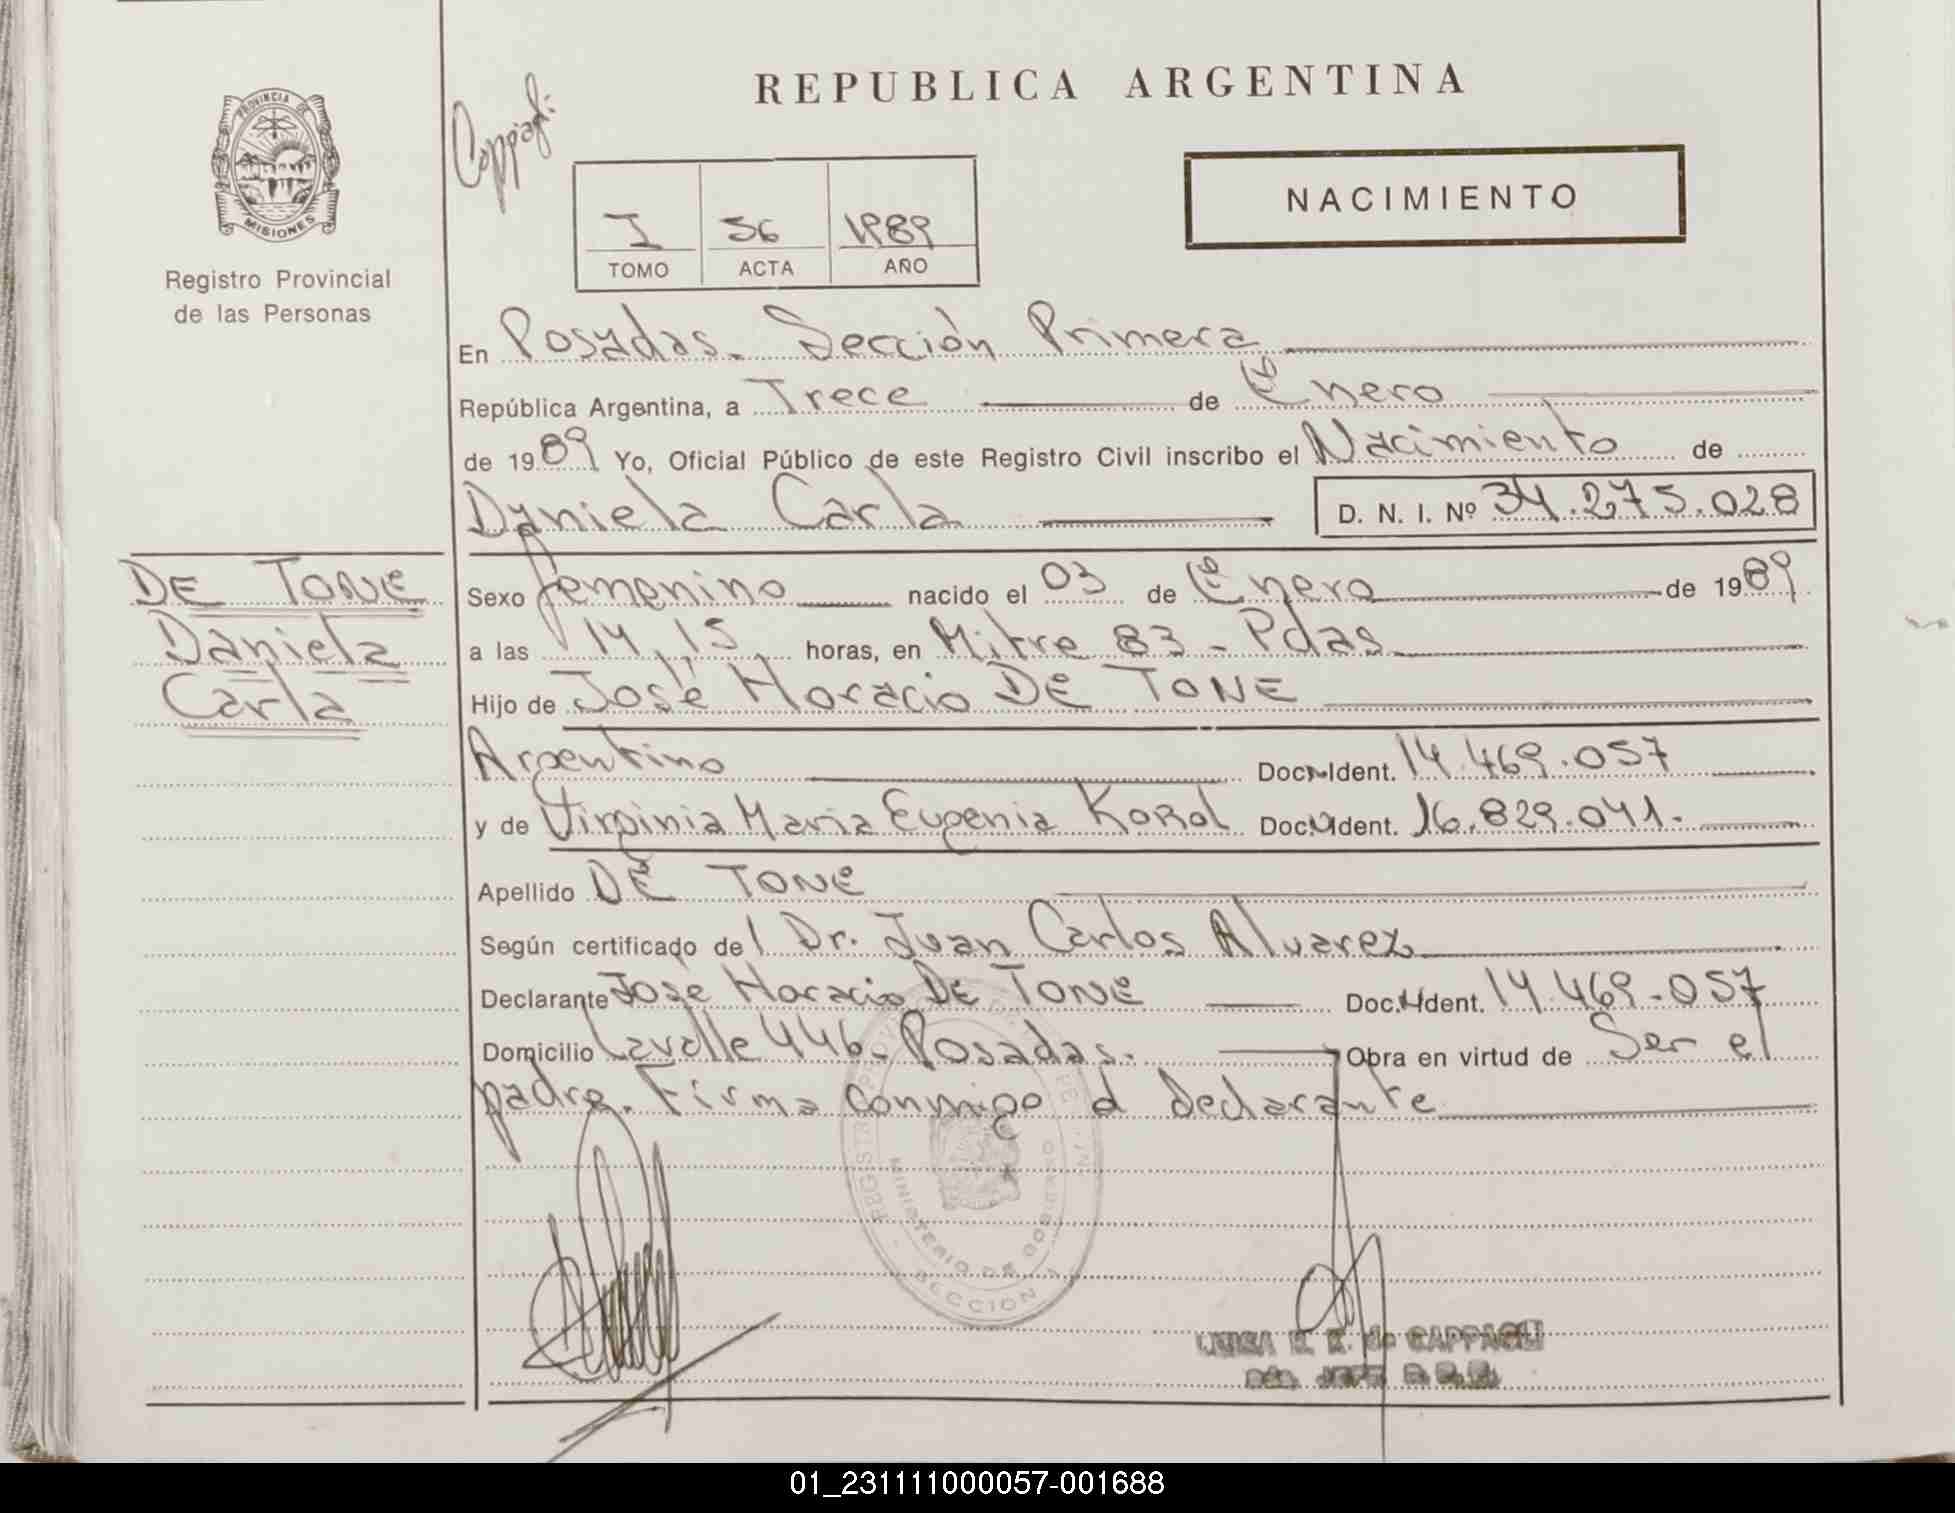 REPUBLICA ARGENTINA
PROVINCIA DE
MISIONES
Registro Provincial
de las Personas
I 36 1989
TOMO ACTA AÑO
NACIMIENTO
En Posadas. Sección Primera
República Argentina, a Trece de Enero
de 1989 Yo, Oficial Público de este Registro Civil inscribo el Nacimiento de
Daniela Carla D. N. I. Nº 34.275.028
DE TONE
Daniela
Carla
Sexo femenino nacido el 03 de Enero de 1989
a las 14,15 horas, en Mitre 83 - Pdas.
Hijo de José Horacio DE TONE
Argentino Doc. Ident. 14.469.057
y de Virginia Maria Eugenia KOROL Doc. Ident. 16.829.041.
Apellido DE TONE
Según certificado del Dr. Juan Carlos Alvarez
Declarante José Horacio DE TONE Doc. Ident. 14.469.057
Domicilio Lavalle 446- Posadas. Obra en virtud de Ser el
padre. Firma conmigo el declarante
MINISTERIO DE GOBIERNO
SECCION 1
de CAPPAGLI
JEFE
01_231111000057-001688